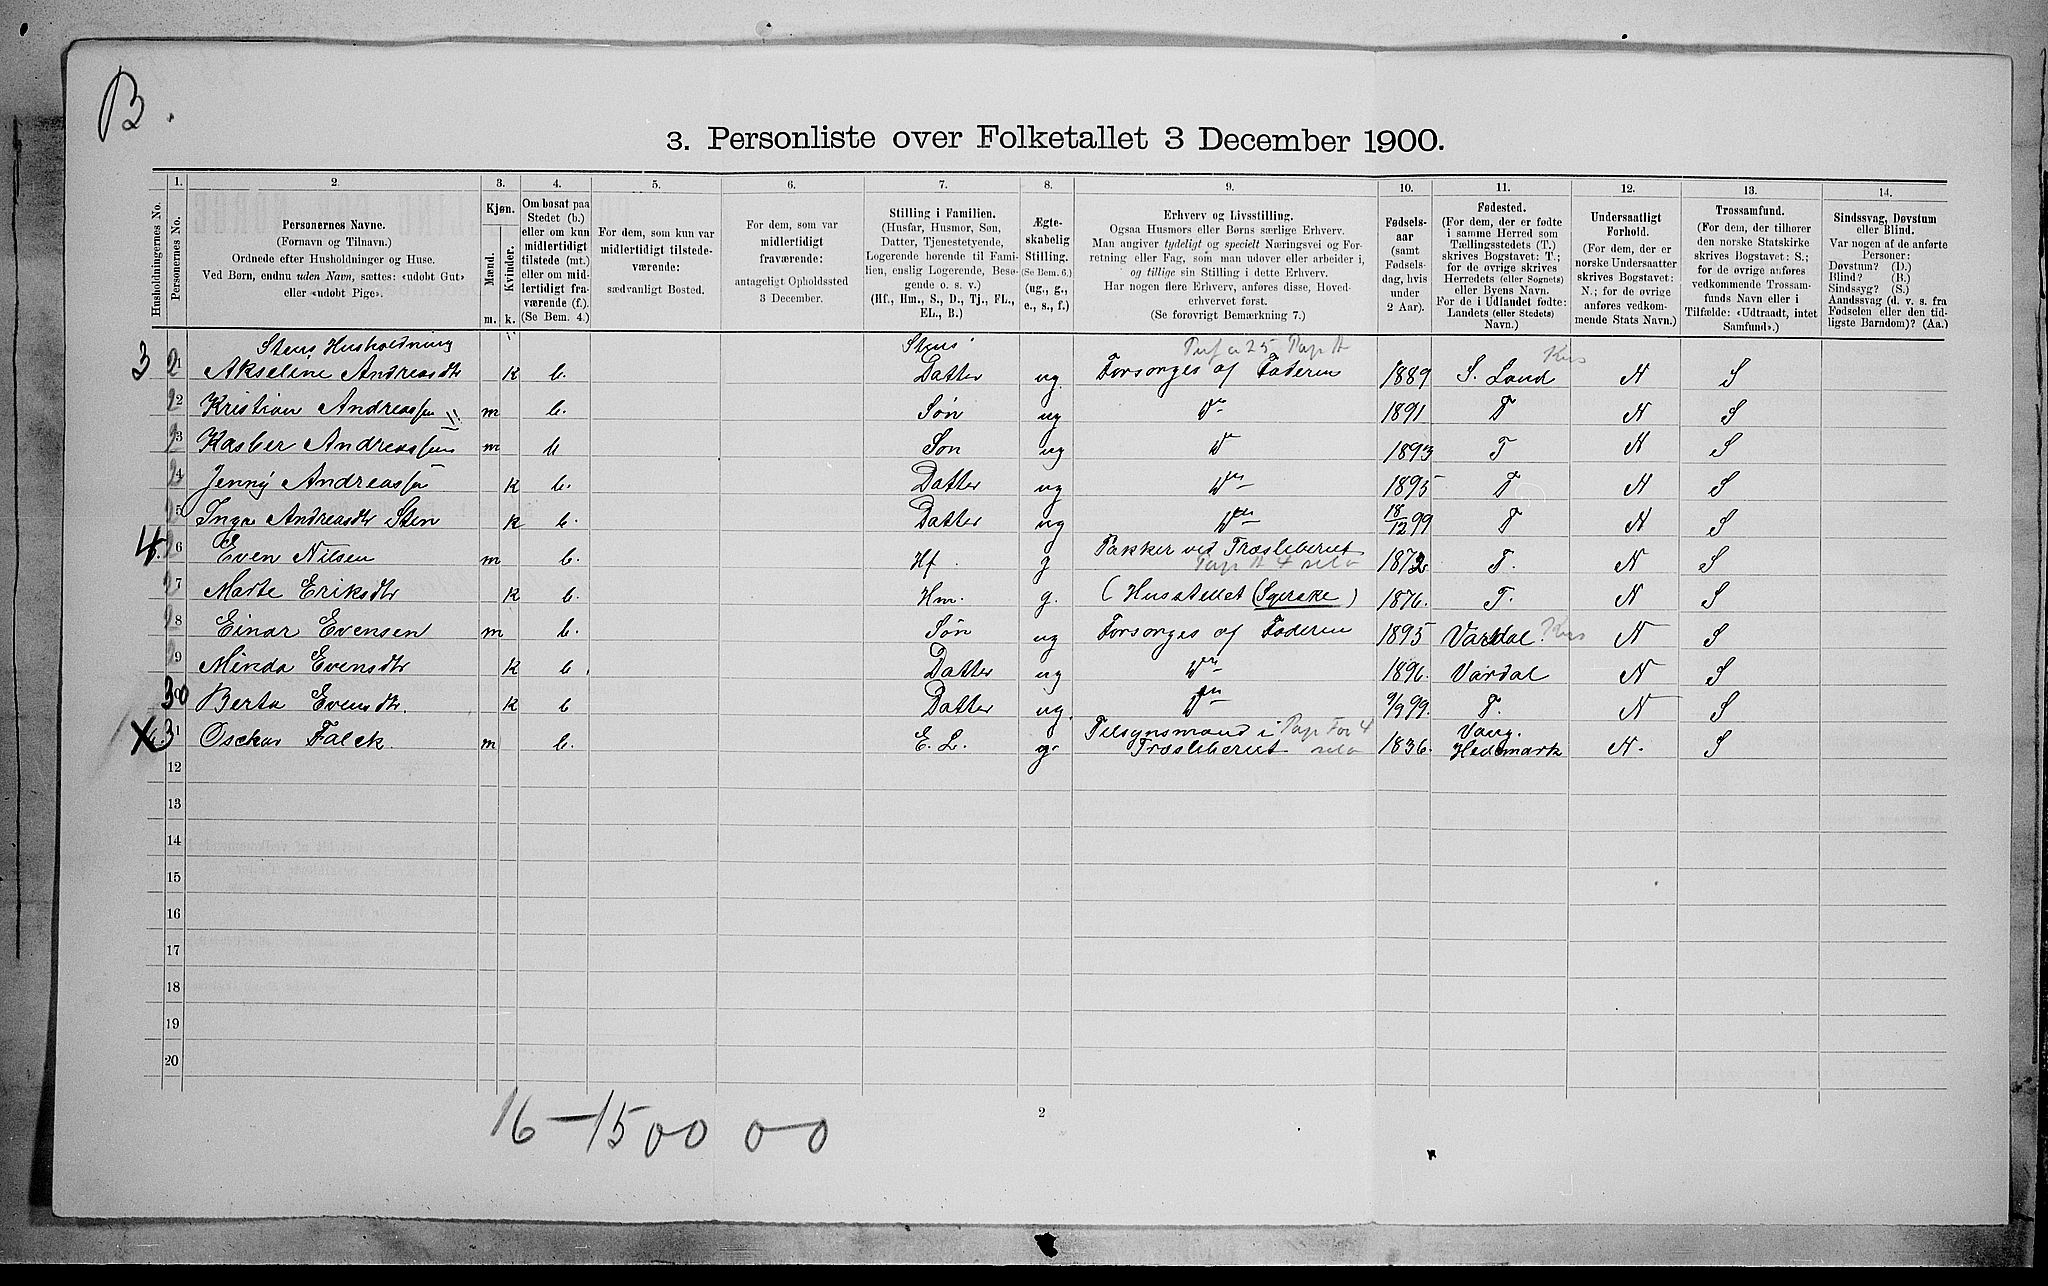 B.
3. Personliste over Folketallet 3 December 1900.
1. 2. 3. 4. 5. 6. 7. 8. 9. 10. 11. 12. 13. 14.
Husholdningernes No.
Personernes No.
Personernes Navne.
(Fornavn og Tilnavn.)
Ordnede efter Husholdninger og Huse.
Ved Børn, endnu uden Navn, sættes: «udøbt Gut»
eller «udøbt Pige».
Kjøn.
Mænd.
Kvinder.
m. k.
Om bosat paa
Stedet (b.)
eller om kun
midlertidigt
tilstede (mt.)
eller om mid-
lertidigt fra-
værende (f.)
(Se Bem. 4.)
For dem, som kun var
midlertidigt tilstede-
værende:
sædvanligt Bosted.
For dem, som var
midlertidigt
fraværende:
antageligt Opholdssted
3 December.
Stilling i Familien.
(Husfar, Husmor, Søn,
Datter, Tjenestetyende,
Logerende hørende til Fami-
lien, enslig Logerende, Besø-
gende o. s. v.)
(Hf., Hm., S., D., Tj., FL.,
EL., B.)
Ægte-
skabelig
Stilling.
(Se Bem. 6.)
(ug., g.,
e., s., f.)
Erhverv og Livsstilling.
Ogsaa Husmors eller Børns særlige Erhverv.
Man angiver tydeligt og specielt Næringsvei og For-
retning eller Fag, som man udover eller arbeider i,
og tillige sin Stilling i dette Erhverv.
Har nogen flere Erhverv, anføres disse, Hoved-
erhvervet først.
(Se forøvrigt Bemærkning 7.)
Fødsels-
aar
(samt
Fødsels-
dag, hvis
under
2 Aar).
Fødested.
(For dem, der er fødte
i samme Herred som
Tællingsstedets (T.)
skrives Bogstavet: T.;
for de øvrige skrives
Herredets (eller Sognets)
eller Byens Navn.
For de i Udlandet fødte:
Landets (eller Stedets)
Navn.)
Undersaatligt
Forhold.
(For dem, der er
norske Undersaatter
skrives Bogstavet:
N.; for de øvrige
anføres vedkom-
mende Stats Navn.)
Trossamfund.
(For dem, der tilhører
den norske Statskirke
skrives Bogstavet: S.;
for de øvrige anføres
vedkommende Trossam-
funds Navn eller i
Tilfælde: «Udtraadt, intet
Samfund».)
Sindssvag, Døvstum
eller Blind.
Var nogen af de anførte
Personer:
Døvstum? (D.)
Blind? (B.)
Sindssyg? (S.)
Aandssvag (d. v. s. fra
Fødselen eller den tid-
ligste Barndom)? (Aa.)
Stens Husholdning Stens
3 21 Akseline Andreasdtr k b. Datter ug. Forsørges af Faderen 1889 S. Land N S
22 Kristian Andreassen m b. Søn ug Do 1891 T N S
23 Kasber Andreassen m b Søn ug Do 1893 T N S
24 Jenny Andreas k b. Datter ug Do 1895 T N S
25 Inga Andreasdtr Sten k b. Datter ug Do 18/12 99 T N S
4. 26 Even Nilsen m b. Hf. g Pakker ved Træsliberiet 1872 T. N S
27 Marte Eriksdtr k b. Hm. g. (Husstellet (Syerske) 1876. T. N S
28 Einar Evensen m b. Søn ug Forsørges af Faderen 1895 Vardal N S
29 Minda Evensdtr k b. Datter ug Do 1896. Vardal N S
30 Berta Evensdtr. k b Datter ug. Do 9/9 99. T. N S
X 31 Osckar Falck. m b. E. L. g. Tilsynsmand i Træsliberiet 1836. Vang. Hedemark N. S
12
13
14
15
16
17
18
19
20
16-1500 00
2